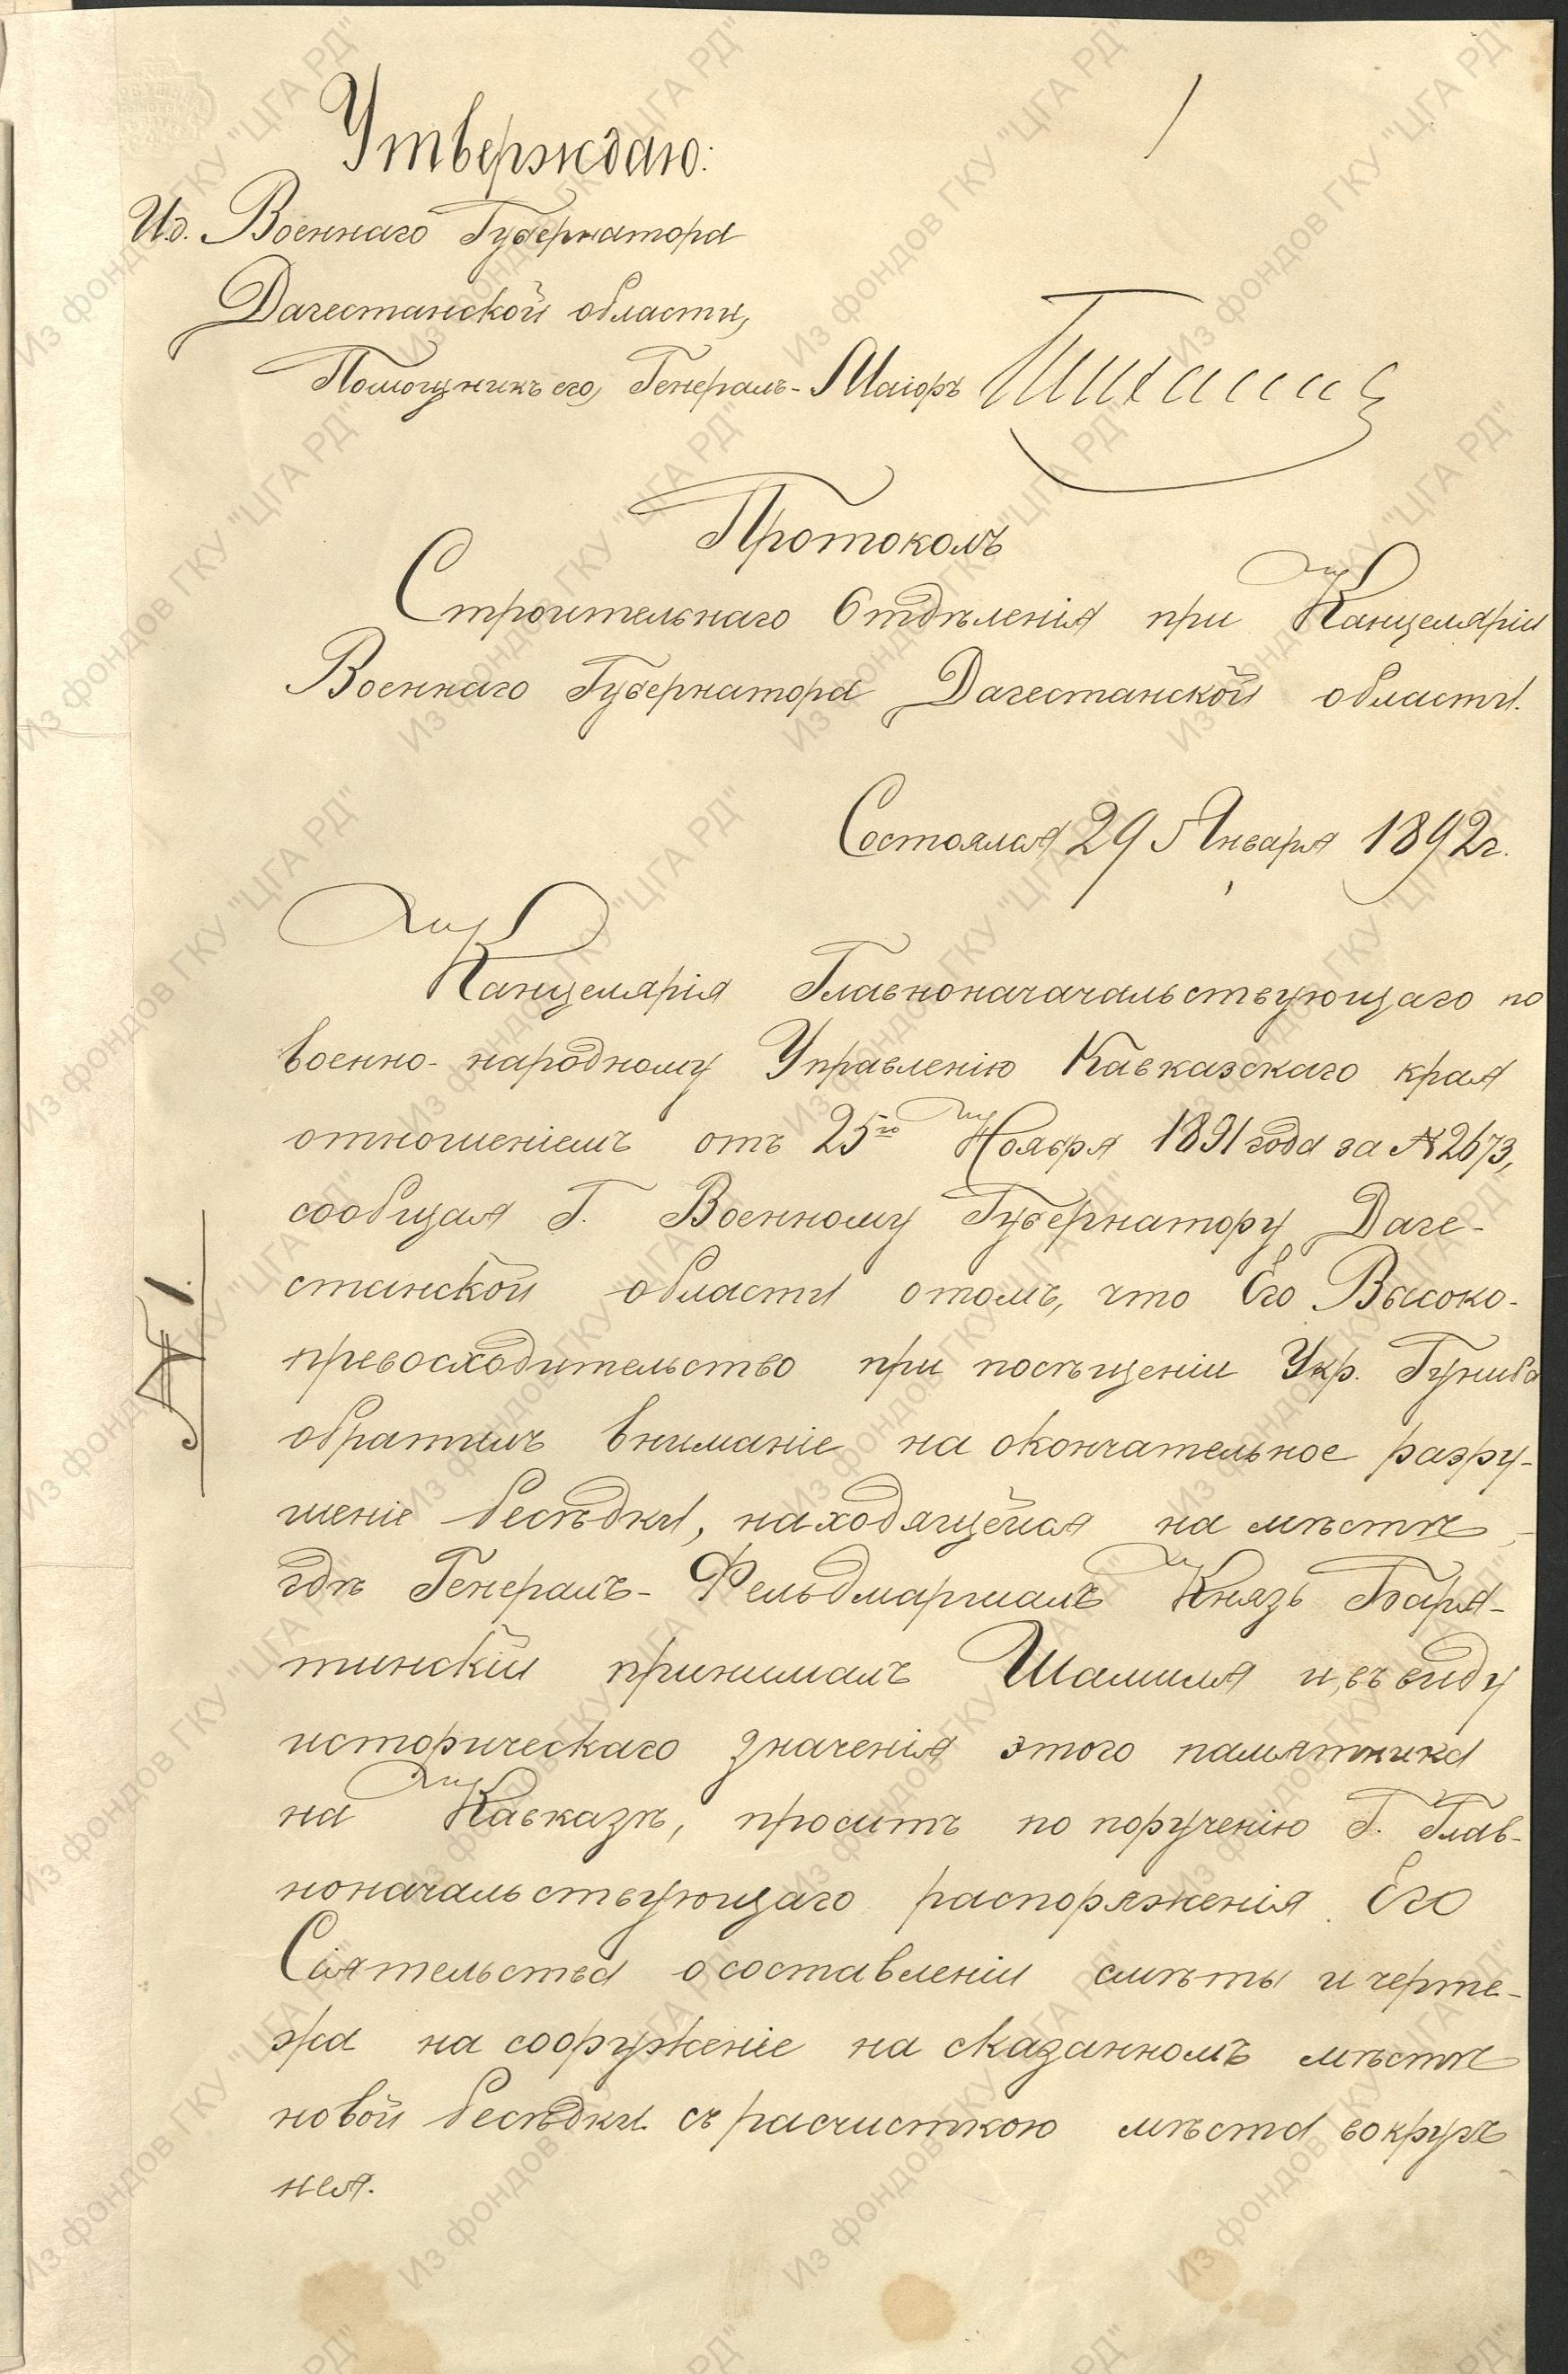 1
Утверждаю:
И.д. Военнаго Губернатора
Дагестанской области,
Помощникъ его, Генералъ-Маіоръ
Протоколъ
Строительнаго Отдѣленія при Канцеляріи
Военнаго Губернатора Дагестанской области.
Состоялся 29 Января 1892 г.
№ 1.
Канцелярія Главноначачальствующаго по
военно-народному Управленію Кавказскаго края
отношеніемъ отъ 25го Ноября 1891 года за № 2673,
сообщая Г. Военному Губернатору Даге-
станской области о томъ, что Его Высоко-
превосходительство при посѣщеніи Укр. Гуниба
обратилъ вниманіе на окончательное разру-
шеніе бесѣдки, находящейся на мѣстѣ,
гдѣ Генералъ-Фельдмаршалъ Князь Баря-
тинскій принималъ Шамиля и, въ виду
историческаго значенія этого памятника
на Кавказѣ, проситъ по порученію Г. Глав-
ноначальствующаго распоряженія Его
Сіятельства о составленіи смѣты и черте-
жа на сооруженіе на сказанномъ мѣстѣ
новой бесѣдки съ расчисткою мѣста вокругъ
нея.
Из фондов ГКУ "ЦГА РД"